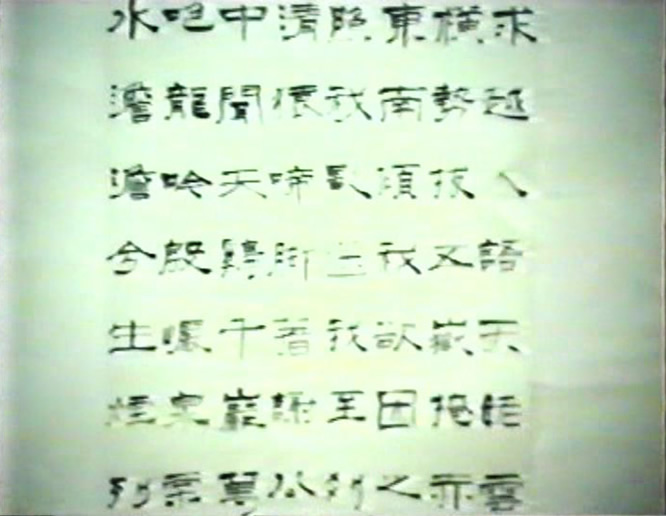 求越人語天姥雲
橫勢拔五嶽掩赤
東南傾我欲因之
照我影送我至剡
清猿啼脚著謝公
中聞天雞千巖萬
咆龍吟殷巖泉慄
水澹澹兮生煙列